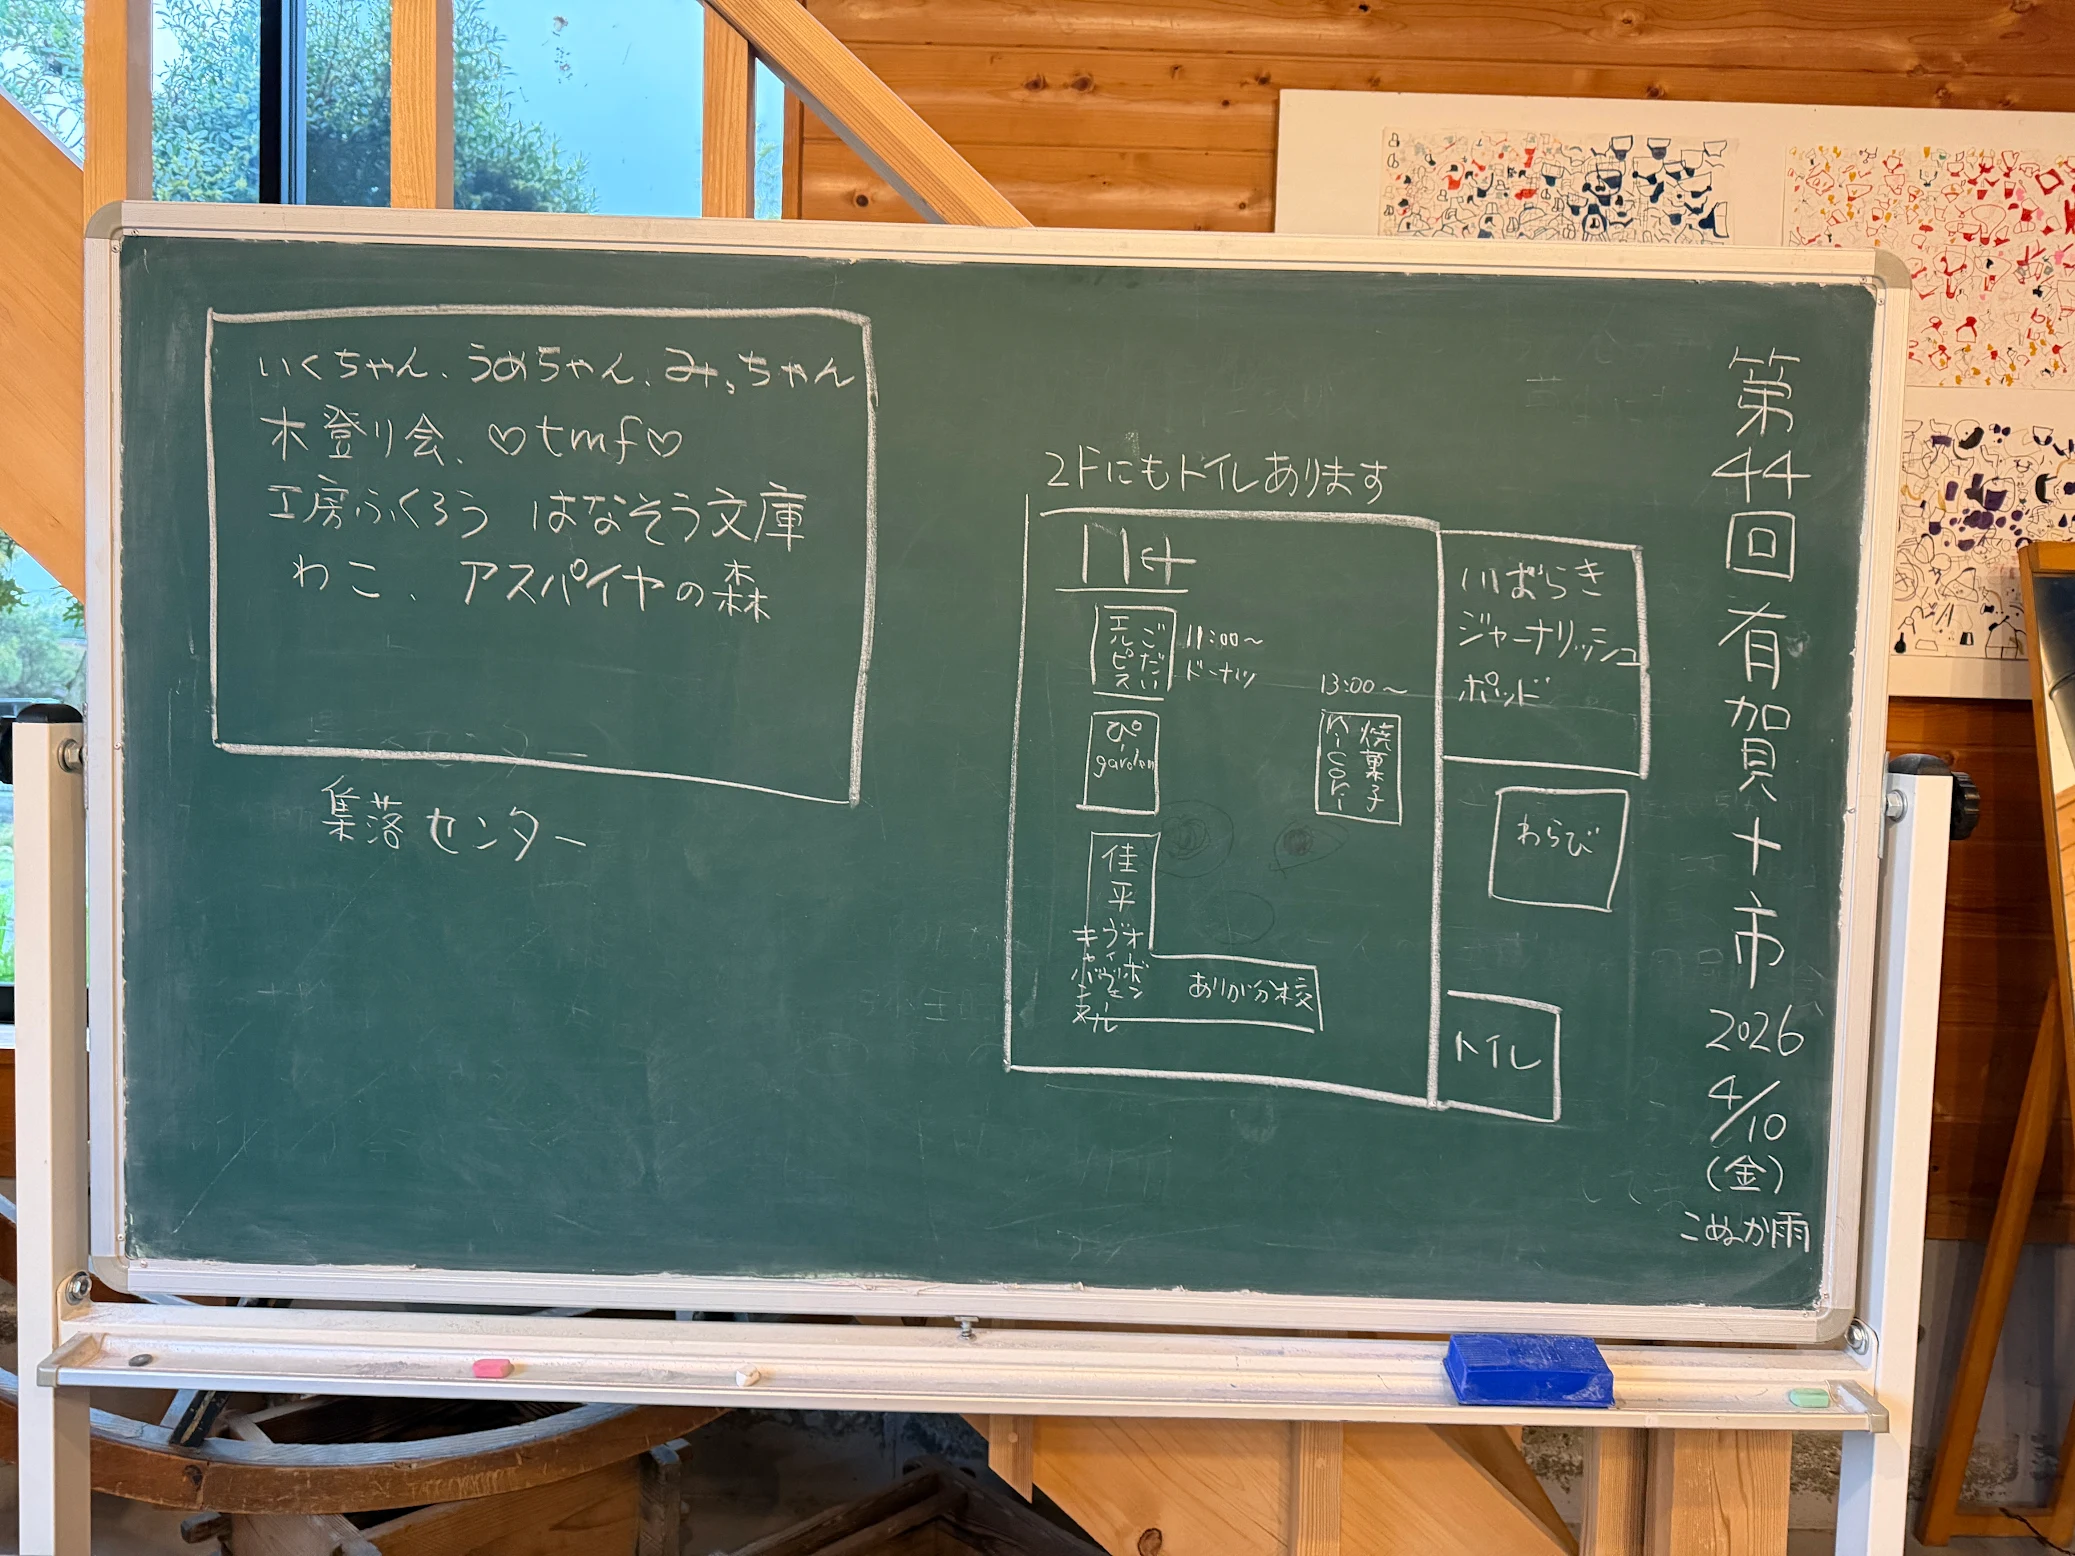 第44回有賀十市
2026
4/10
(金)
こぬか雨
いくちゃん、うめちゃん、みっちゃん
木登り会、♡tmf♡
工房ふくろう はなそう文庫
わこ、アスパイヤの森
集落センター
2Fにもトイレあります
ごだい
エルピス
11:00〜
ドーナツ
ぴー
garden
13:00〜
焼菓子
佳平
ヴィーヴェンヌ
キャバヌール
ありが分校
いばらき
ジャーナリッシュ
ポッド
わらび
トイレ